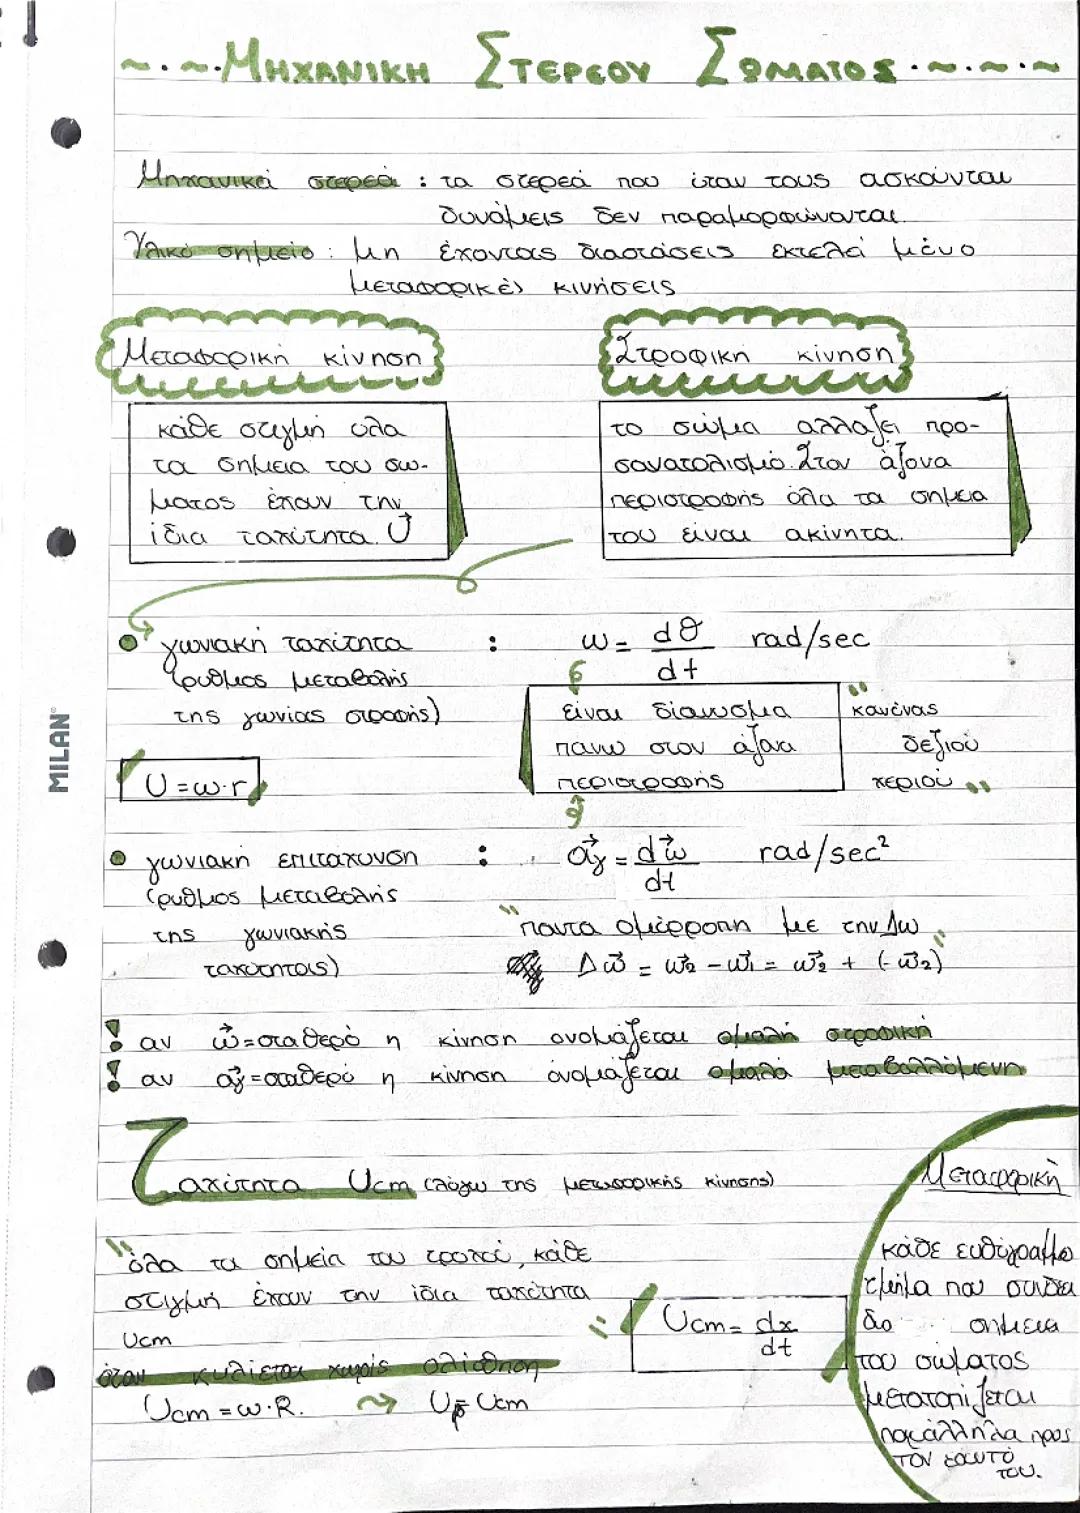 ~.~.ΜΗΧΑΝΙΚΗ ΣΤΕΡΕΟΥ ΣΩΜΑΤΟΣ.~.~.~
Μηχανικά στερεά : τα στερεά που όταν τους ασκούνται
δυνάμεις δεν παραμορφώνονται.
Υλικό σημείο : Μη έχοντας διαστάσεις εκτελεί μόνο
μεταφορικές κινήσεις
Μεταφορική κίνηση
κάθε στιγμή όλα
τα σημεία του σώ-
ματος έχουν την
ίδια ταχύτητα. U⃗
Στροφική κίνηση
το σώμα αλλάζει προ-
σανατολισμό. Στον άξονα
περιστροφής όλα τα σημεία
του είναι ακίνητα.
γωνιακή ταχύτητα : ω = dθ/dt rad/sec
(ρυθμος μεταβολής
της γωνίας στροφής)
είναι διάνυσμα
πανω στον άξονα
περιστροφής
"κανόνας
δεξιού
χεριού"
U = ω·r
γωνιακή επιτάχυνση : α⃗γ = dω⃗/dt rad/sec²
(ρυθμος μεταβολής
της γωνιακής
ταχύτητας)
"παντα ομόρροπη με την Δω
Δω⃗ = ω⃗2 - ω⃗1 = ω⃗2 + (-ω⃗2)"
! αν ω⃗=σταθερό η κίνηση ονομάζεται ομαλή στροφική
! αν α⃗γ=σταθερό η κίνηση ονομάζεται ομαλά μεταβαλλόμενη
Ταχύτητα Ucm (λόγω της μεταφορικής κίνησης)
"όλα τα σημεία του τροχού, κάθε
στιγμή έχουν την ίδια ταχύτητα
Ucm "
Ucm = dx/dt
όταν κυλίεται χωρίς ολίσθηση
Ucm = ω·R. ⤳ Uγρ = Ucm
Μεταφορική
κάθε ευθύγραμμο
τμήμα που συνδέει
δυο σημεία
του σώματος
μετατοπίζεται
παράλληλα προς
τον εαυτό
του.
MILAN